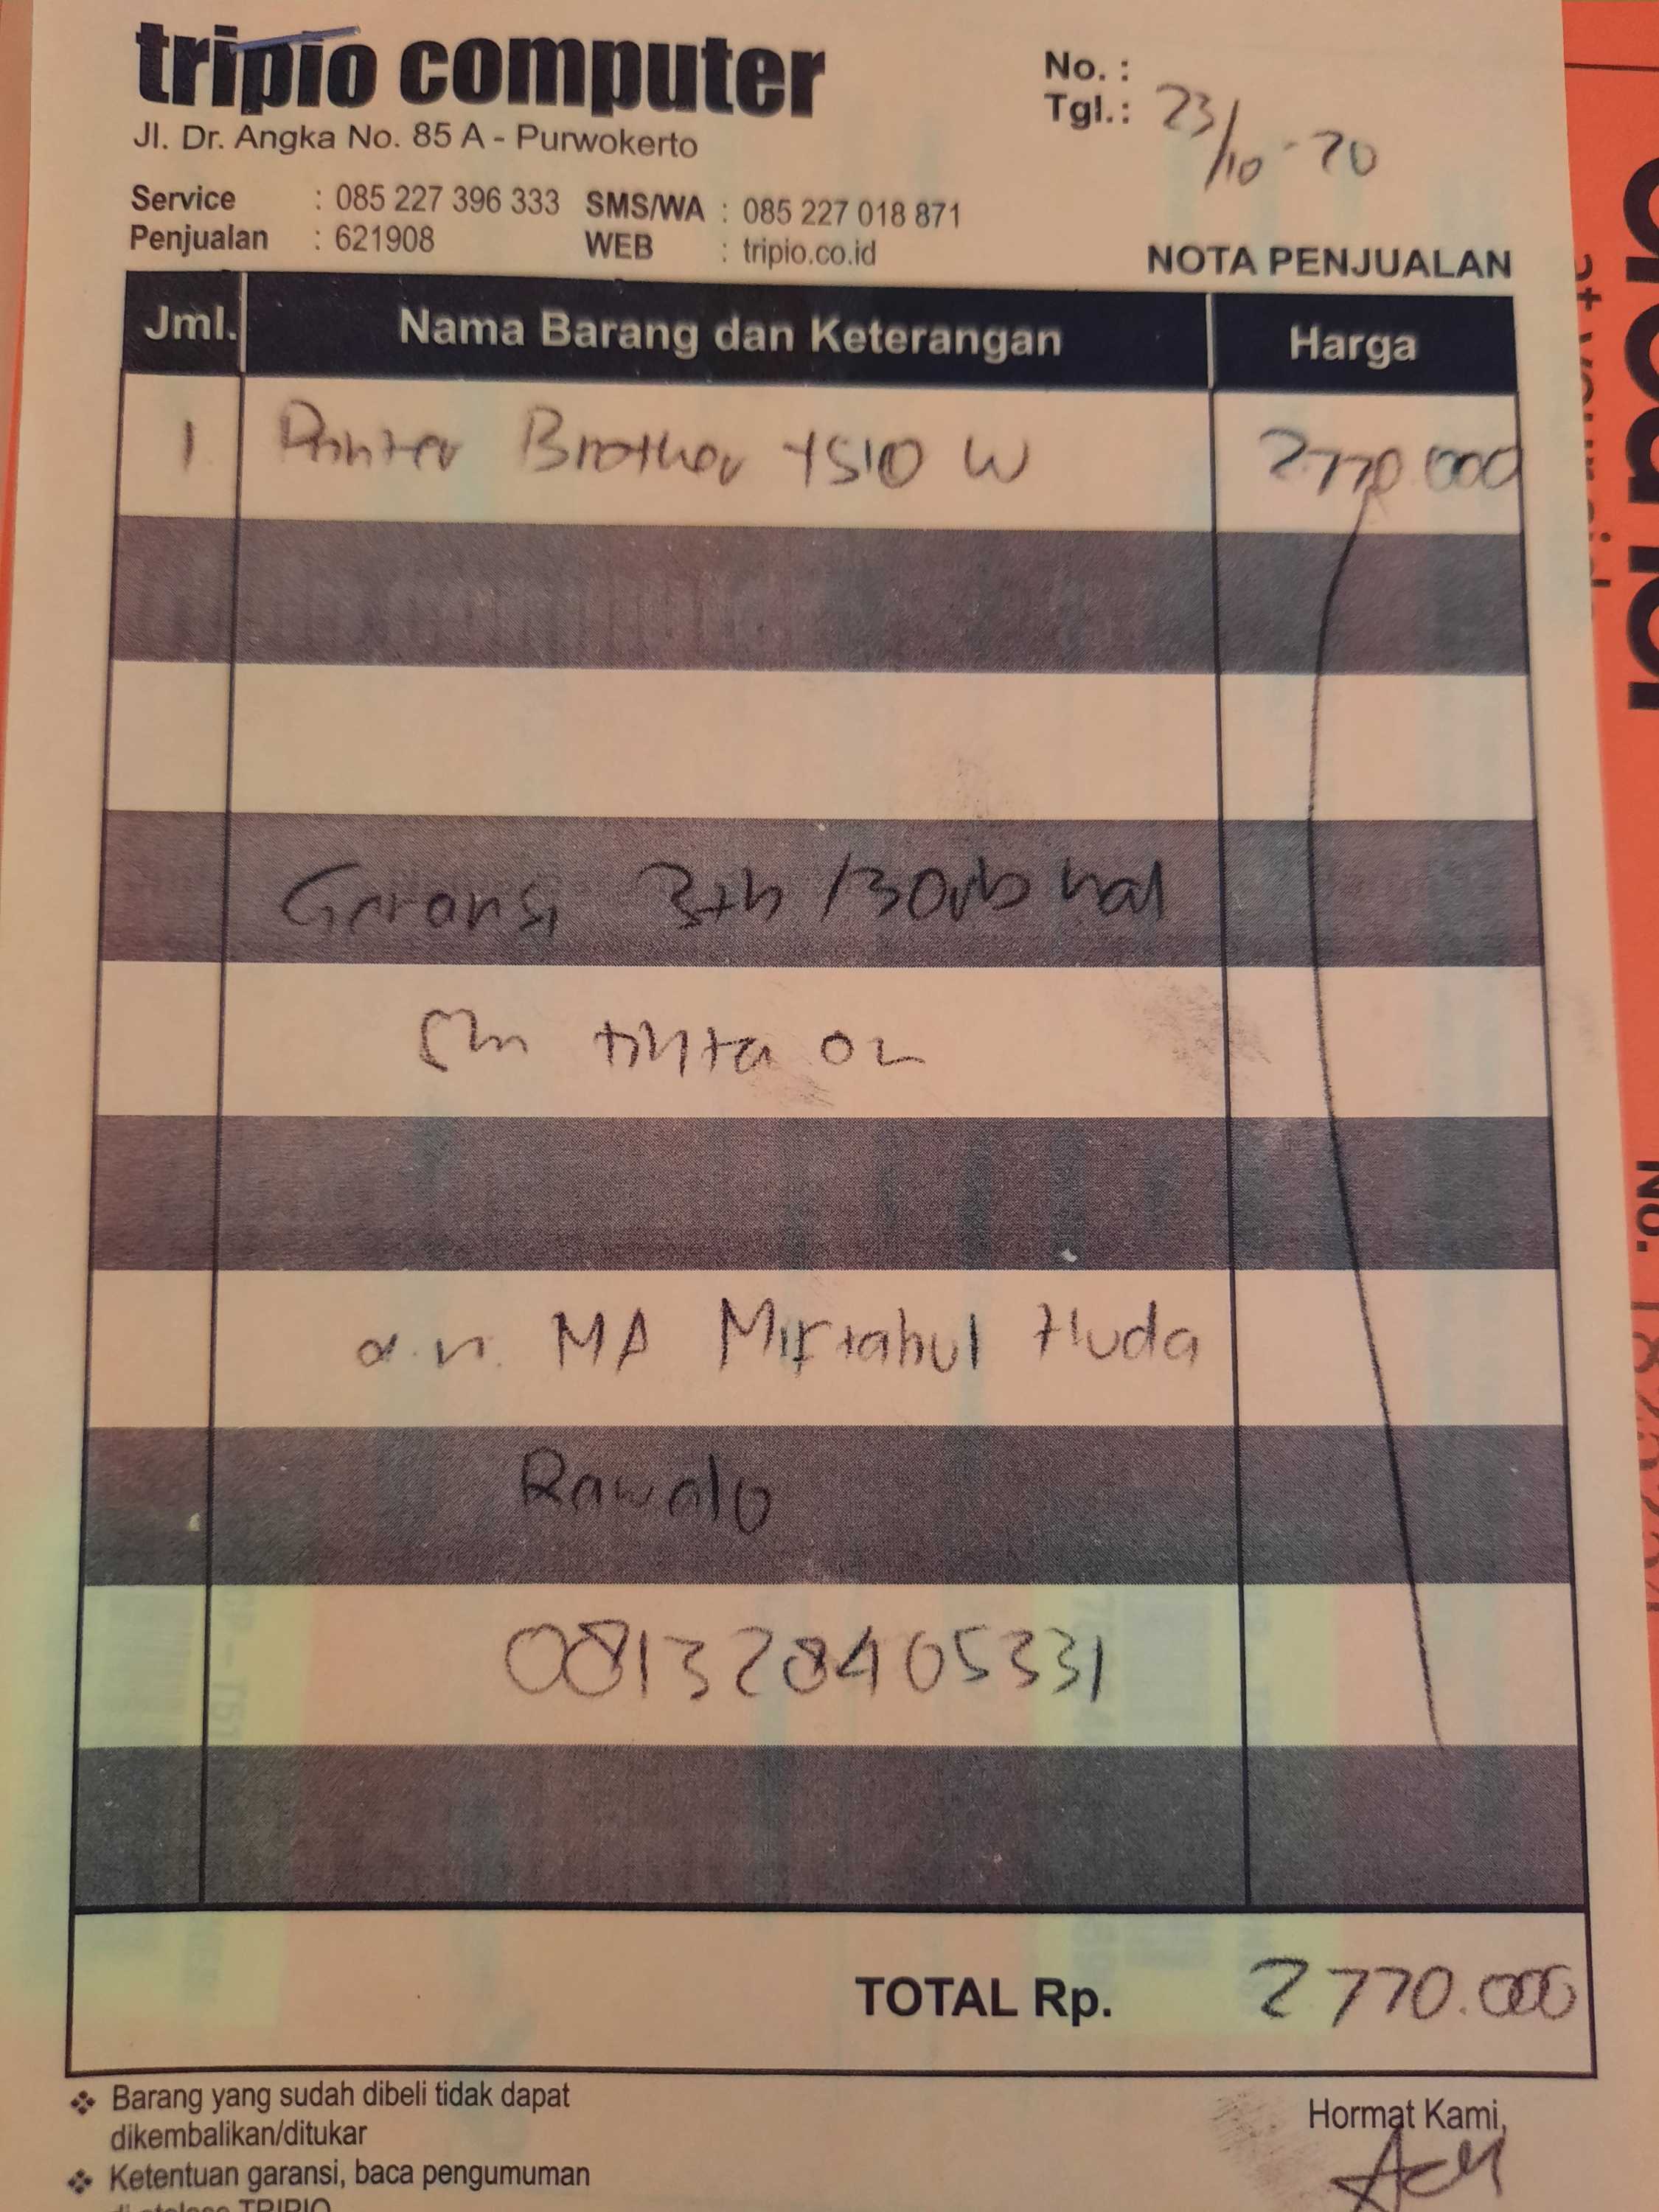 tripio computer
Jl. Dr. Angka No. 85 A - Purwokerto
No. :
Tgl. : 23/10-20
Service : 085 227 396 333 SMS/WA : 085 227 018 871
Penjualan : 621908 WEB : tripio.co.id
NOTA PENJUALAN
Jml. Nama Barang dan Keterangan Harga
1 Printer Brother T510 W 2.770.000
Garansi 3th / 30rb hal
tinta
a.n. MA Miftahul Huda
Rawalo
081328405331
TOTAL Rp. 2770.000
❖ Barang yang sudah dibeli tidak dapat
dikembalikan/ditukar
❖ Ketentuan garansi, baca pengumuman
di etalase TRIPIO
Hormat Kami,
No.